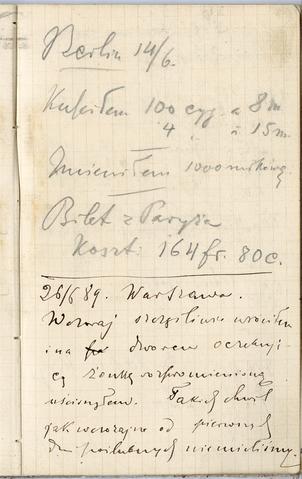 Berlin 14/6.
Kupiłem 100 cyg. a 8 m
4 " à 15 m.
Zmieniłem 1000 markówą.
Bilet z Paryża
Koszt: 164 fr. 80 c.
26/6 89. Warszawa.
Wczoraj szczęśliwie wróciłem
i na dworcu oczekują-
cą żonkę rozpromienioną
uściskałem. Takich chwil
jak wczorajsze od pierwszych
dni poślubnych nie mieliśmy.